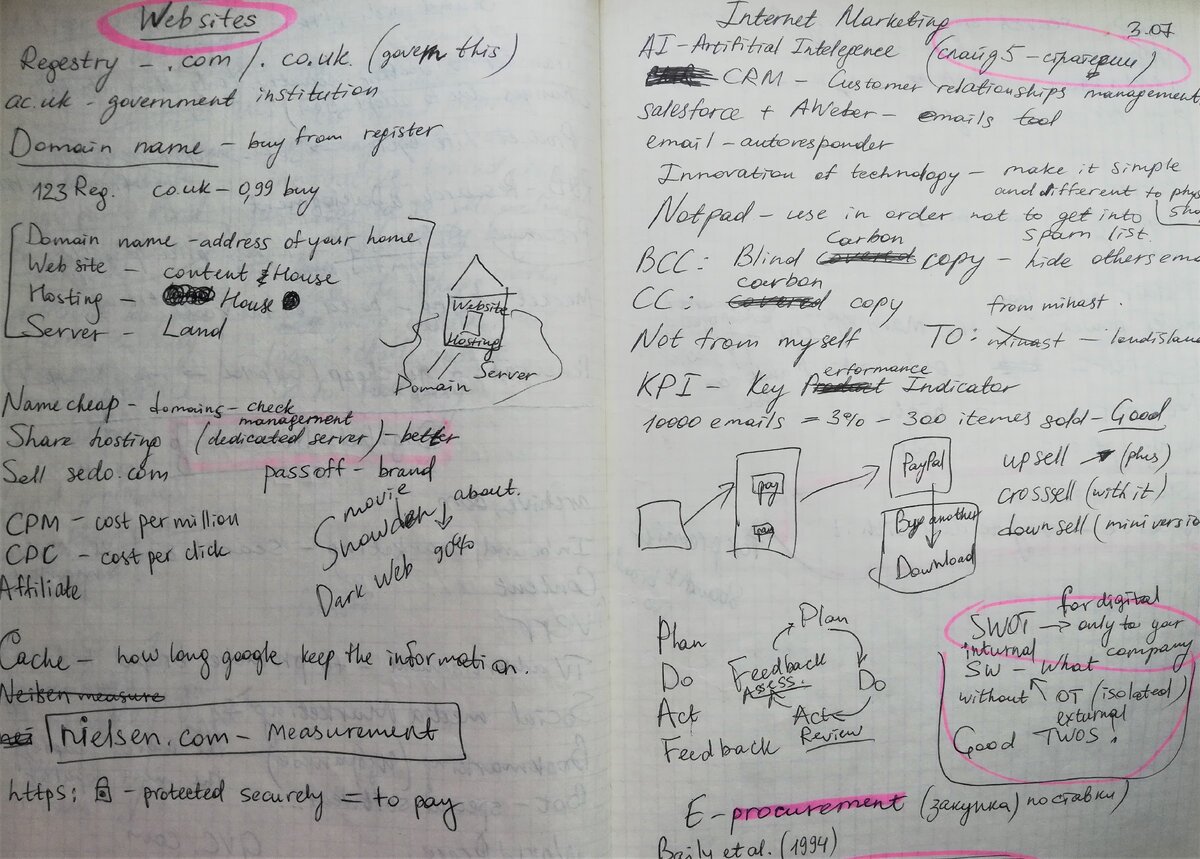 Web sites
Regestry - .com /. co.uk. (govern this)
ac.uk - government institution
Domain name - buy from register
123 Reg. co.uk - 0,99 buy
Domain name - address of your home
Web site - content House
Hosting - House
Server - Land
Website
Hosting
Domain Server
Namecheap - domains - check
management
Share hosting (dedicated server) - better
Sell sedo.com pass off - brand
CPM - cost per million
CPC - cost per click
Affiliate
movie about.
Snowden
Dark Web 90%
Cache - how long google keep the information.
Neilsen measure
nielsen.com - Measurement
https: - protected securely = to pay
Internet Marketing 3.07
AI - Artifitial Intelegence (слайд 5 - стратегии)
CRM - Customer relationships management
salesforce + AWeber - emails tool
email - autoresponder
Innovation of technology - make it simple
and different to phys
Notpad - use in order not to get into
spam list.
Carbon
BCC: Blind Covered copy - hide others ema
carbon
CC: Covered copy from minast.
Not from myself TO: minast - londislan
erformance
KPI - Key Product Indicator
10000 emails = 3% - 300 itemes sold - Good
pay
pay
PayPal
Bye another
Download
upsell → (plus)
crosssell (with it)
downsell (mini versio
Plan
Do
Act
Feedback
Plan
Do
Act
Review
Feedback
Assess.
for digital
SWOT → only to your
internal company
SW - What
without OT (isolated)
external
Good TWOS.
E-procurement (закупка) поставки)
Baily et al. (1994)